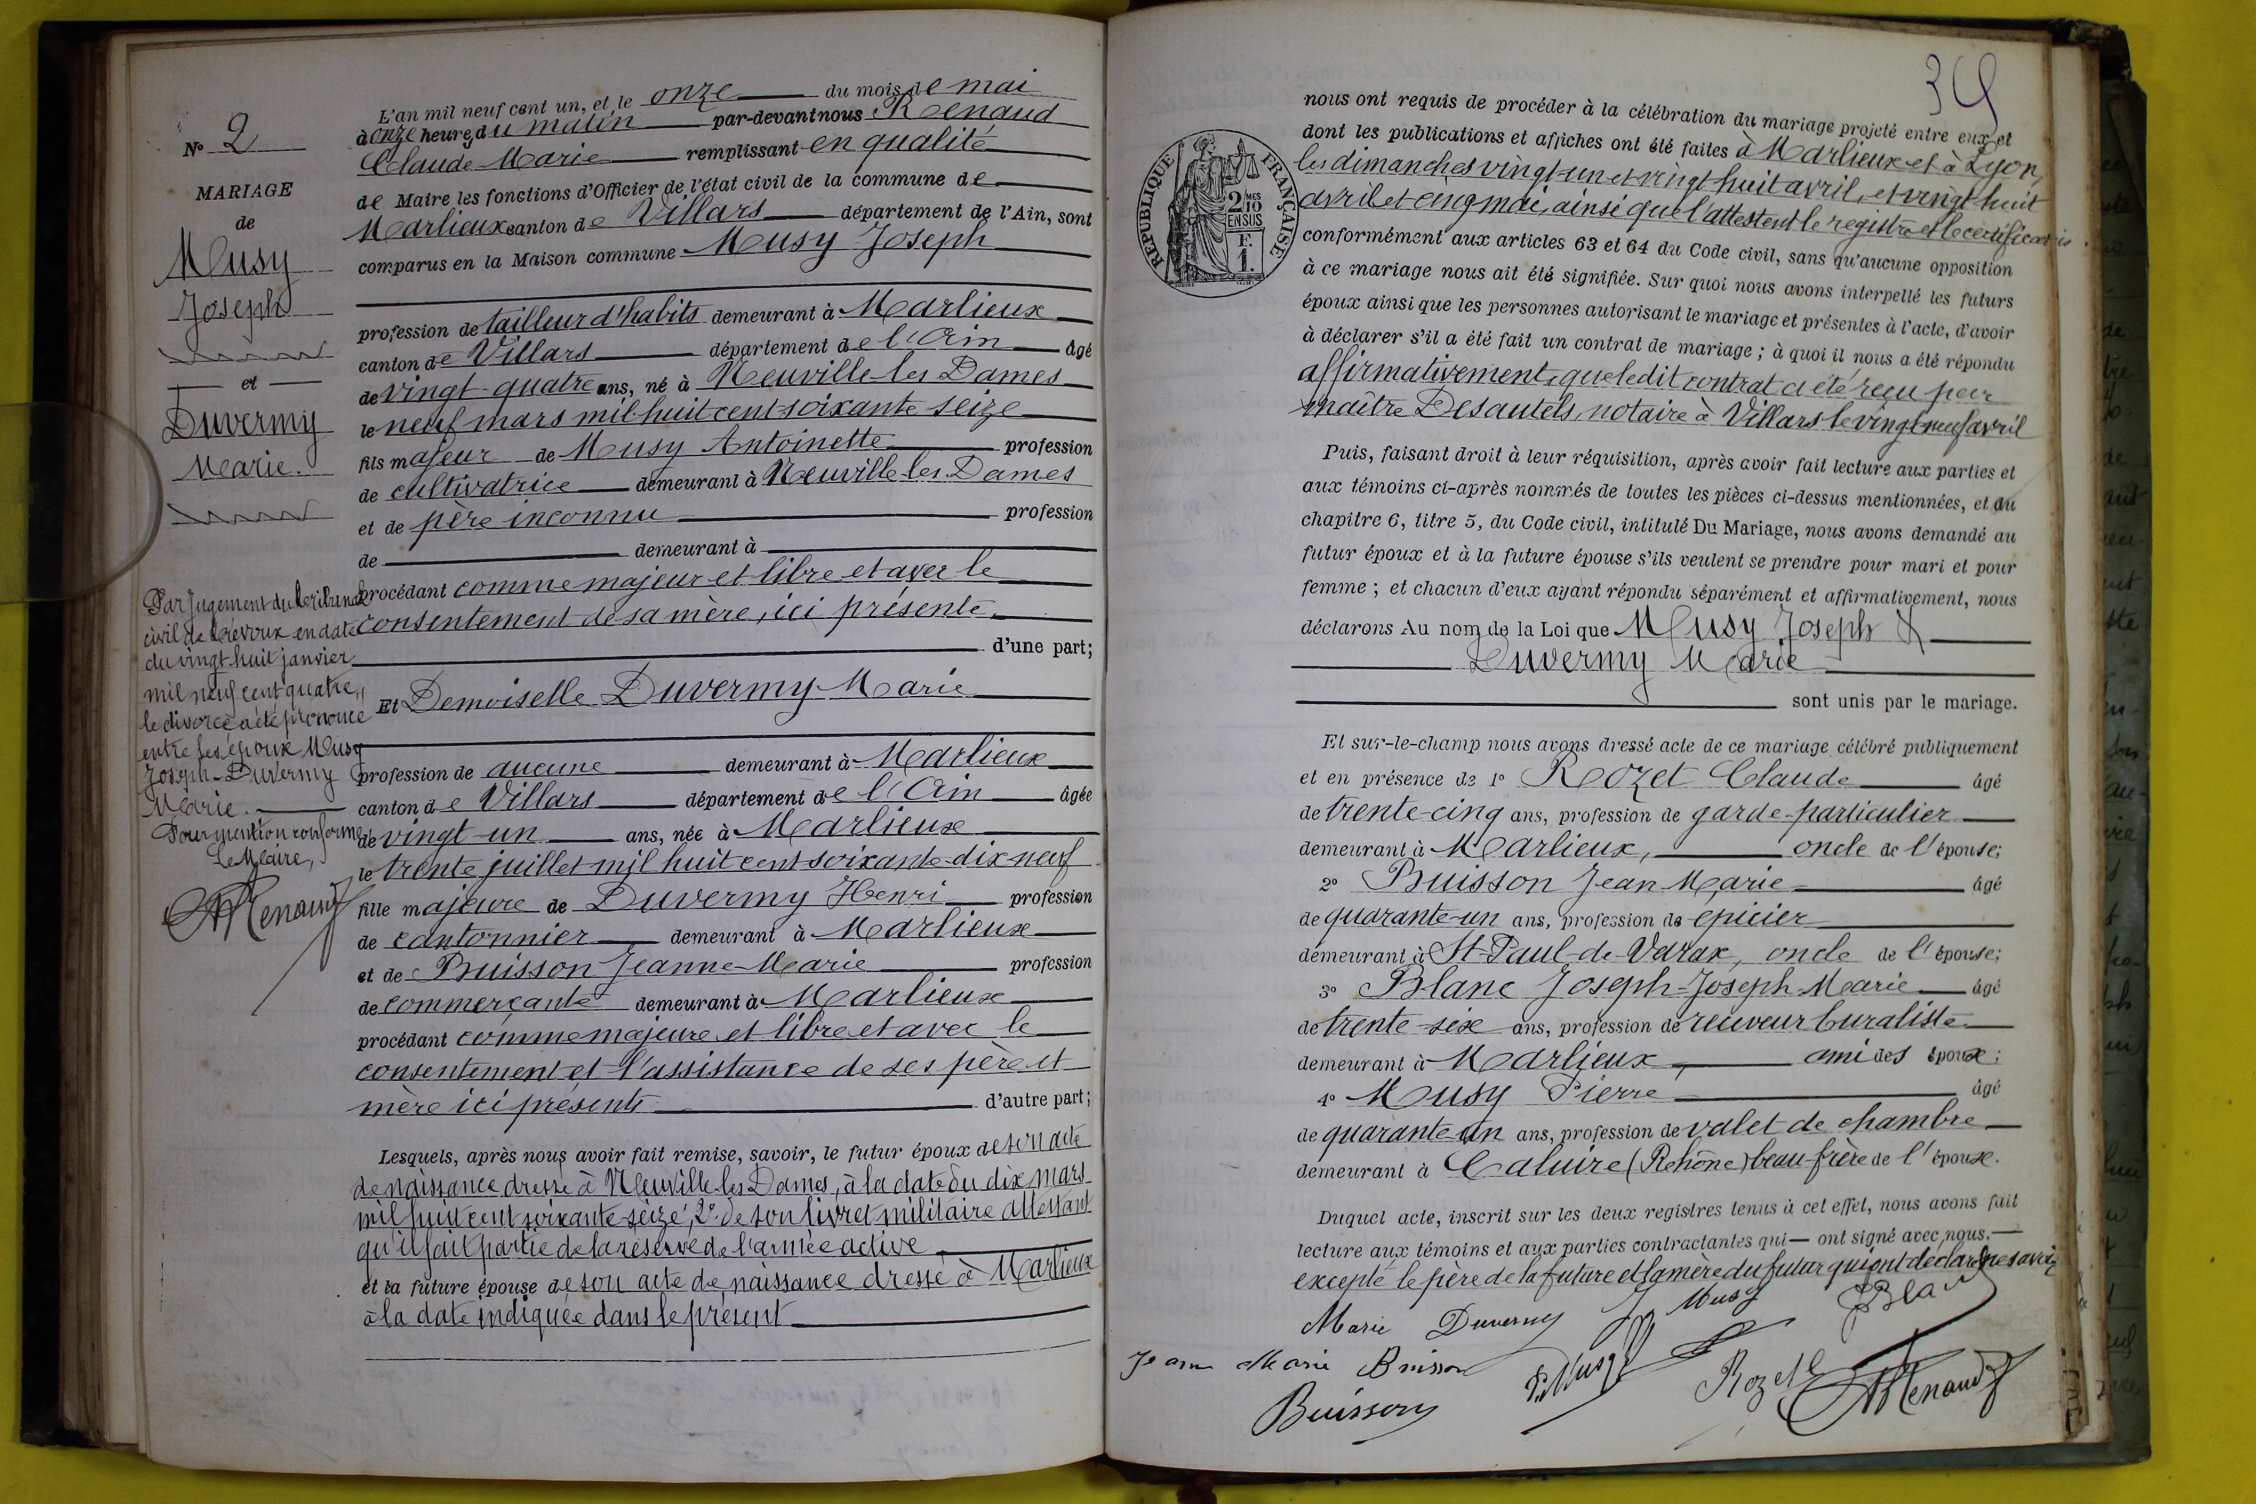 L'an mil neuf cent un, et le onze du mois de mai
à onze heures du matin par-devant nous Renaud
Claude Marie remplissant en qualité
de Maire les fonctions d'Officier de l'état civil de la commune de
Marlieux canton de Villars département de l'Ain, sont
comparus en la Maison commune Musy Joseph
profession de tailleur d'habits demeurant à Marlieux
canton de Villars département de l'Ain âgé
de vingt-quatre ans, né à Neuville-les-Dames
le neuf mars mil huit cent soixante-seize
fils majeur de Musy Antoinette profession
de cultivatrice demeurant à Neuville-les-Dames
et de père inconnu profession
de demeurant à
procédant comme majeur et libre et avec le
consentement de sa mère, ici présente.
d'une part;
Et Demoiselle Duvermy Marie
profession de aucune demeurant à Marlieux
canton de Villars département de l'Ain âgée
de vingt-un ans, née à Marlieux
le trente juillet mil huit cent soixante-dix-neuf
fille majeure de Duvermy Henri profession
de cantonnier demeurant à Marlieux
et de Buisson Jeanne-Marie profession
de commerçante demeurant à Marlieux
procédant comme majeure et libre et avec le
consentement et l'assistance de ses père et
mère ici présents d'autre part;
Lesquels, après nous avoir fait remise, savoir, le futur époux de son acte
de naissance dressé à Neuville-les-Dames, à la date du dix mars
mil huit cent soixante-seize, 2° de son livret militaire attestant
qu'il fait partie de la réserve de l'armée active
et la future épouse de son acte de naissance dressé à Marlieux
à la date indiquée dans le présent
N° 2
MARIAGE
de
Musy
Joseph
et
Duvermy
Marie.
Par jugement du tribunal
civil de Trévoux en date
du vingt-huit janvier
mil neuf cent quatre,
le divorce a été prononcé
entre les époux Musy
Joseph-Duvermy
Marie.
Pour mention conforme,
Le Maire,
Renaud
39
RÉPUBLIQUE FRANÇAISE
2 MES
10
EN SUS
F.
1.
nous ont requis de procéder à la célébration du mariage projeté entre eux et
dont les publications et affiches ont été faites à Marlieux et à Lyon,
les dimanches vingt-un et vingt-huit avril, et vingt-huit
avril et cinq mai, ainsi que l'attestent le registre et le certificat
conformément aux articles 63 et 64 du Code civil, sans qu'aucune opposition
à ce mariage nous ait été signifiée. Sur quoi nous avons interpellé les futurs
époux ainsi que les personnes autorisant le mariage et présentes à l'acte, d'avoir
à déclarer s'il a été fait un contrat de mariage; à quoi il nous a été répondu
affirmativement, que ledit contrat a été reçu par
maître Desautels, notaire à Villars le vingt-neuf avril
Puis, faisant droit à leur réquisition, après avoir fait lecture aux parties et
aux témoins ci-après nommés de toutes les pièces ci-dessus mentionnées, et du
chapitre 6, titre 5, du Code civil, intitulé Du Mariage, nous avons demandé au
futur époux et à la future épouse s'ils veulent se prendre pour mari et pour
femme; et chacun d'eux ayant répondu séparément et affirmativement, nous
déclarons Au nom de la Loi que Musy Joseph &
Duvermy Marie
sont unis par le mariage.
Et sur-le-champ nous avons dressé acte de ce mariage célébré publiquement
et en présence de 1° Rozet Claude âgé
de trente-cinq ans, profession de garde-particulier
demeurant à Marlieux, oncle de l'épouse;
2° Buisson Jean Marie âgé
de quarante-un ans, profession de epicier
demeurant à St-Paul-de-Varax, oncle de l'épouse;
3° Blanc Joseph-Joseph-Marie âgé
de trente-six ans, profession de receveur buraliste
demeurant à Marlieux, ami des époux;
4° Musy Pierre âgé
de quarante-un ans, profession de valet de chambre
demeurant à Caluire (Rhône) beau-frère de l'épouse.
Duquel acte, inscrit sur les deux registres tenus à cet effet, nous avons fait
lecture aux témoins et aux parties contractantes qui ont signé avec nous,
excepté le père de la future et la mère du futur qui ont déclaré ne savoir
Marie Duvermy J Musy JBlanc
Jeanne Marie Buisson P. Musy Rozet C Renaud
Buisson